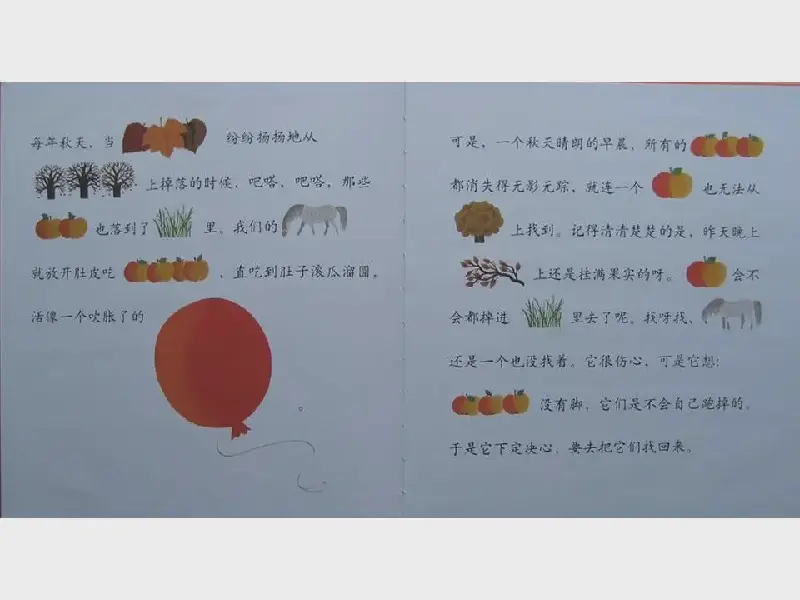 每年秋天，当 纷纷扬扬地从
上掉落的时候，吧嗒、吧嗒，那些
也落到了 里。我们的
就放开肚皮吃 ，直吃到肚子滚瓜溜圆。
活像一个吹胀了的
。
可是，一个秋天晴朗的早晨，所有的
都消失得无影无踪，就连一个 也无法从
上找到。记得清清楚楚的是，昨天晚上
上还是挂满果实的呀。 会不
会都掉过 里去了呢，找呀找、
还是一个也没找着。它很伤心，可是它想：
没有脚，它们是不会自己跑掉的。
于是它下定决心，要去把它们找回来。